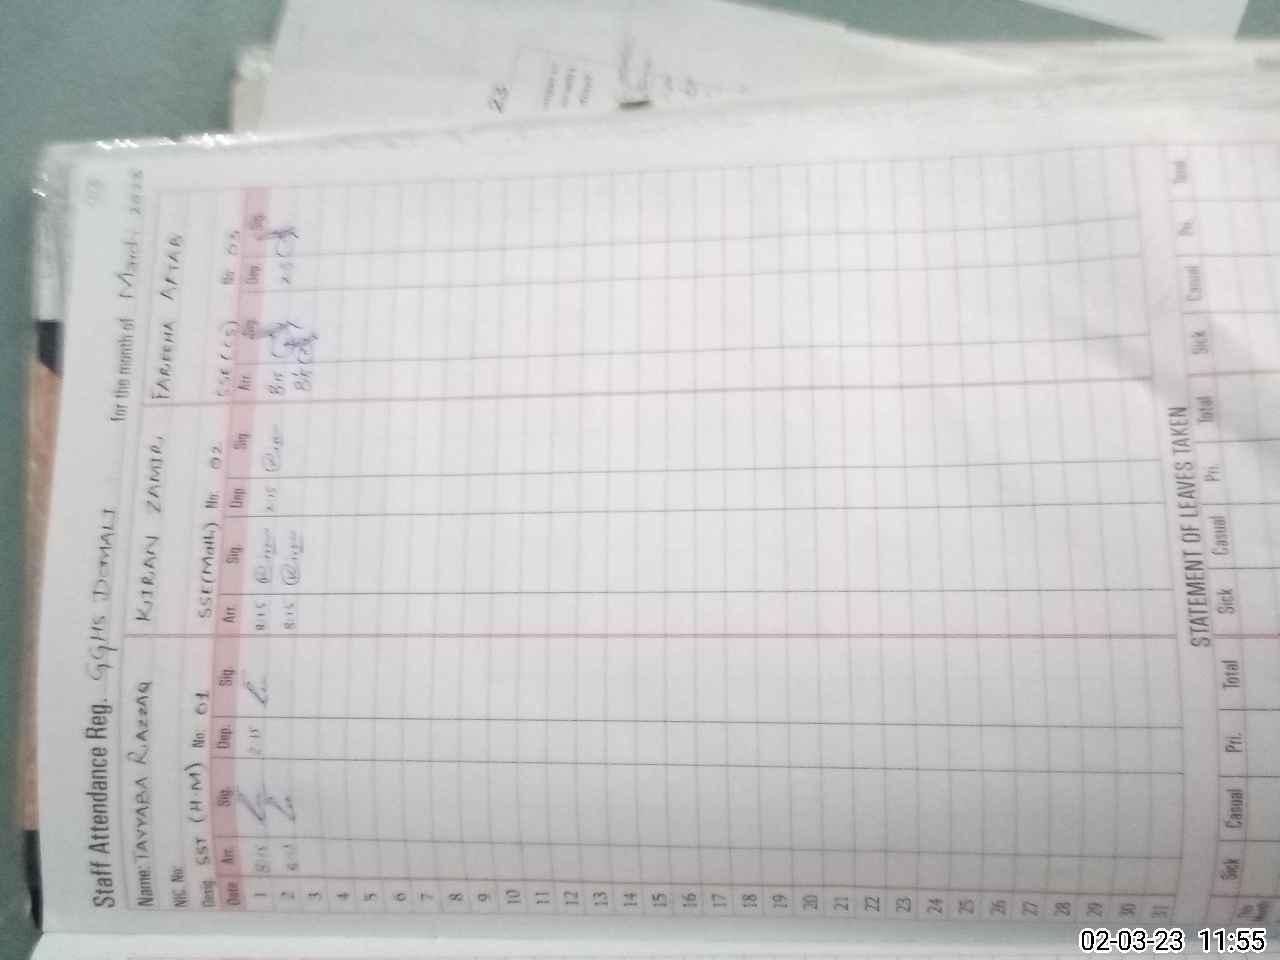 Staff Attendance Reg. GGHS DOMALI for the month of March 2023
Name: TAYYABA RIAZZAQ KIRAN ZAMIR, FAREEHA AFTAB
NIC No:
Desig SST (H.M) No: 01 SSE(Math) No: 02 SSE (CS) No: 03
Date Arr. Sig. Dep. Sig. Arr. Sig. Dep Sig. Arr. Sig. Dep. Sig.
1 8:15 2:15 8:15 2:15 8:15
2 8:15 8:15
3
4
5
6
7
8
9
10
11
12
13
14
15
16
17
18
19
20
21
22
23
24
25
26
27
28
29
30
31
STATEMENT OF LEAVES TAKEN
Sick Casual Pri. Total Sick Casual Pri. Total Sick Casual Pri. Total
This Month
23
02-03-23 11:55